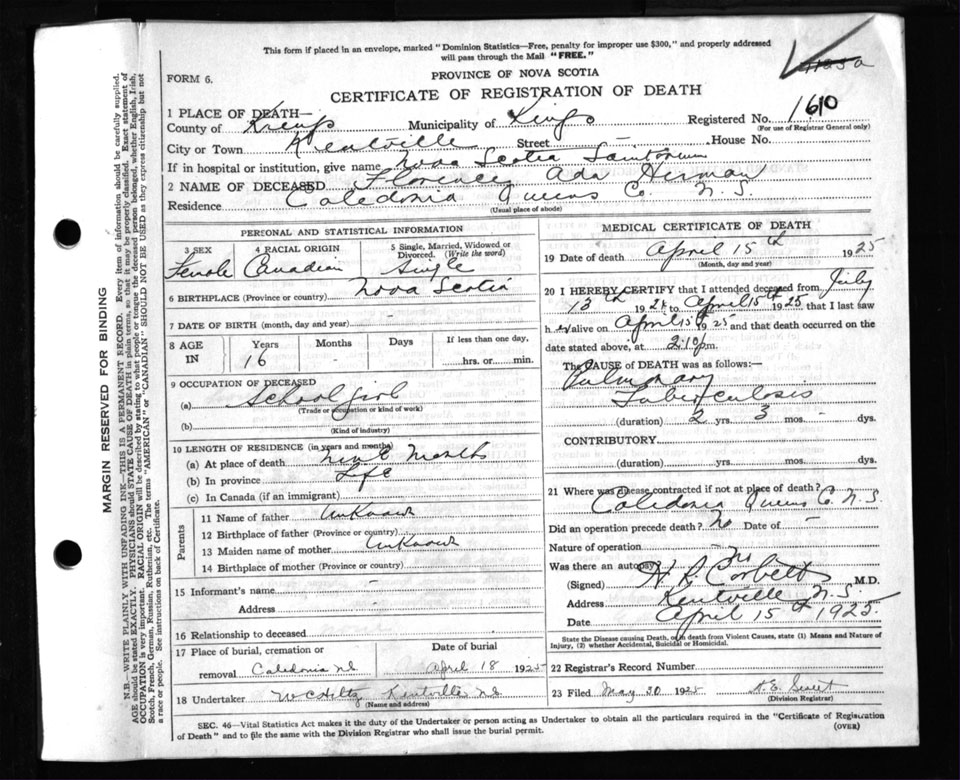 This form if placed in an envelope, marked "Dominion Statistics—Free, penalty for improper use $300," and properly addressed
will pass through the Mail "FREE."
FORM 6.
PROVINCE OF NOVA SCOTIA
CERTIFICATE OF REGISTRATION OF DEATH
1 PLACE OF DEATH—
Registered No. 1610
(For use of Registrar General only)
County of Kings Municipality of Kings
City or Town Kentville Street House No.
If in hospital or institution, give name Nova Scotia Sanitorium
2 NAME OF DECEASED Florence Ada Herman
Residence Caledonia Queens Co. N.S.
(Usual place of abode)
PERSONAL AND STATISTICAL INFORMATION
3 SEX 4 RACIAL ORIGIN 5 Single, Married, Widowed or
Divorced. (Write the word)
Female Canadian Single
6 BIRTHPLACE (Province or country) Nova Scotia
7 DATE OF BIRTH (month, day and year) -
8 AGE Years Months Days If less than one day,
IN 16 - hrs. or min.
9 OCCUPATION OF DECEASED
(a) School girl
(Trade or occupation or kind of work)
(b)
(Kind of industry)
10 LENGTH OF RESIDENCE (in years and months)
(a) At place of death nine months
(b) In province Life
(c) In Canada (if an immigrant)
Parents
11 Name of father Unknown
12 Birthplace of father (Province or country)
13 Maiden name of mother Unknown
14 Birthplace of mother (Province or country)
15 Informant's name -
Address
16 Relationship to deceased
17 Place of burial, cremation or Date of burial
removal Caledonia NS April 18 1925
18 Undertaker W C Hiltz Kentville NS
(Name and address)
MEDICAL CERTIFICATE OF DEATH
19 Date of death April 15th 1925
(Month, day and year)
20 I HEREBY CERTIFY that I attended deceased from July
13th 1924 to April 15th 1925 that I last saw
h er alive on April 15th 1925 and that death occurred on
date stated above, at 2:10 p.m.
The CAUSE OF DEATH was as follows:—
Pulmonary
Tuberculosis
(duration) 2 yrs. 3 mos. - dys.
CONTRIBUTORY
(duration) yrs. mos. dys.
21 Where was disease contracted if not at place of death?
Caledonia Queens Co. N.S.
Did an operation precede death? No Date of -
Nature of operation -
Was there an autopsy? No
(Signed) H. R. Corbett M.D.
Address Kentville N.S.
Date April 15th 1925.
State the Disease causing Death, or in death from Violent Causes, state (1) Means and Nature of
Injury, (2) whether Accidental, Suicidal or Homicidal.
22 Registrar's Record Number
23 Filed May 30 1925
(Division Registrar)
SEC. 46—Vital Statistics Act makes it the duty of the Undertaker or person acting as Undertaker to obtain all the particulars required in the "Certificate of Registration
of Death" and to file the same with the Division Registrar who shall issue the burial permit.
(OVER)
MARGIN RESERVED FOR BINDING
N.B.—WRITE PLAINLY WITH UNFADING INK—THIS IS A PERMANENT RECORD. Every item of information should be carefully supplied.
AGE should be stated EXACTLY. PHYSICIANS should STATE CAUSE OF DEATH in plain terms, so that it may be properly classified. Exact statement of
OCCUPATION is very important. RACIAL ORIGIN will be described by stating to what people or tongue the deceased person belonged, whether English, Irish,
Scotch, French, German, Russian, Ruthenian, etc. The terms "AMERICAN" or "CANADIAN" SHOULD NOT BE USED as they express citizenship but not
a race or people. See instructions on back of Certificate.